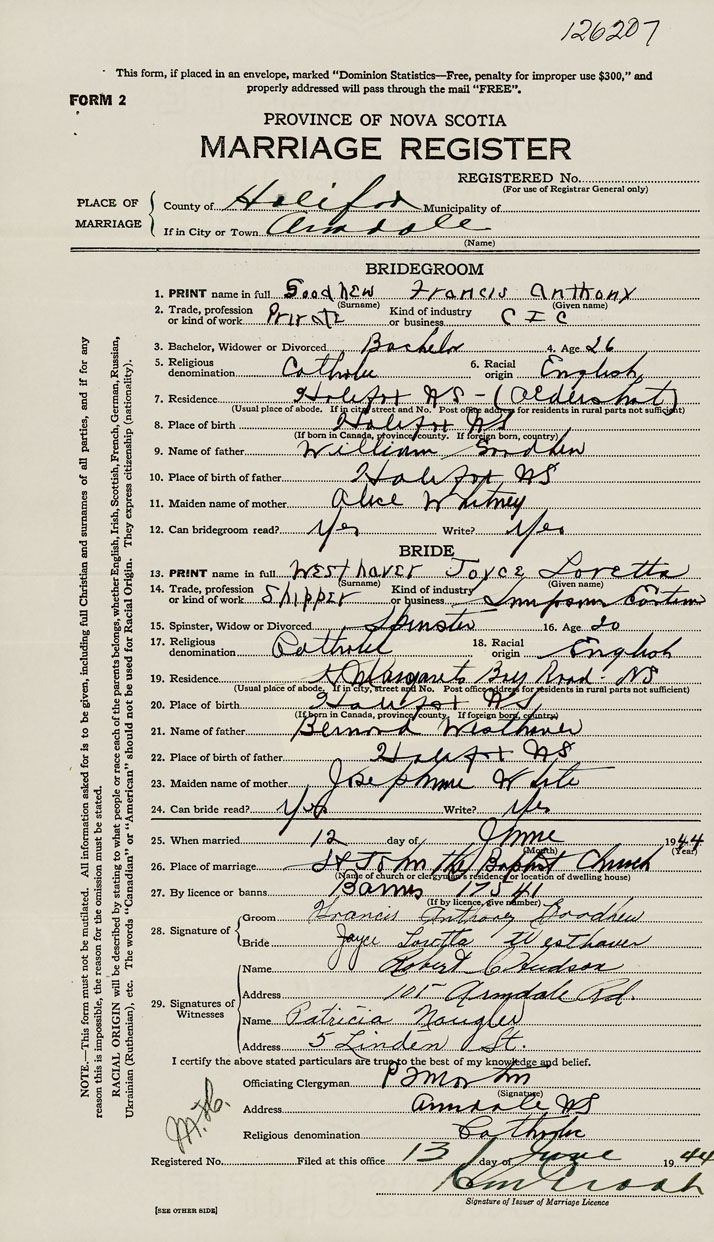 126207
This form, if placed in an envelope, marked "Dominion Statistics—Free, penalty for improper use $300," and
properly addressed will pass through the mail "FREE".
FORM 2
PROVINCE OF NOVA SCOTIA
MARRIAGE REGISTER
REGISTERED No.
(For use of Registrar General only)
PLACE OF MARRIAGE
County of Halifax Municipality of
If in City or Town Armdale
(Name)
BRIDEGROOM
1. PRINT name in full Goodhew Francis Anthony
(Surname) (Given name)
2. Trade, profession or kind of work Private Kind of industry or business C I C
3. Bachelor, Widower or Divorced Bachelor 4. Age 26
5. Religious denomination Catholic 6. Racial origin English
7. Residence Halifax NS - (Aldershot)
(Usual place of abode. If in city street and No. Post office address for residents in rural parts not sufficient)
8. Place of birth Halifax NS
(If born in Canada, province/county. If foreign born, country)
9. Name of father William Goodhew
10. Place of birth of father Halifax NS
11. Maiden name of mother Alice Whitney
12. Can bridegroom read? Yes Write? Yes
BRIDE
13. PRINT name in full Westhaver Joyce Loretta
(Surname) (Given name)
14. Trade, profession or kind of work Shipper Kind of industry or business Simpson Eastern
15. Spinster, Widow or Divorced Spinster 16. Age 20
17. Religious denomination Catholic 18. Racial origin English
19. Residence Margarets Bay Road - NS
(Usual place of abode. If in city, street and No. Post office address for residents in rural parts not sufficient)
20. Place of birth Halifax NS
(If born in Canada, province/county. If foreign born, country)
21. Name of father Bernard Westhaver
22. Place of birth of father Halifax NS
23. Maiden name of mother Josephine White
24. Can bride read? Yes Write? Yes
25. When married 12 day of June 1944
(Month) (Year)
26. Place of marriage St John the Baptist Church
(Name of church or clergyman's residence or location of dwelling house)
27. By licence or banns Banns 17541
(If by licence, give number)
28. Signature of
Groom Francis Anthony Goodhew
Bride Joyce Loretta Westhaver
29. Signatures of Witnesses
Name Robert C Hudson
Address 105 Armdale Rd.
Name Patricia Naugler
Address 5 Linden St.
I certify the above stated particulars are true to the best of my knowledge and belief.
Officiating Clergyman
(Signature)
Address Armdale NS
Religious denomination Catholic
Registered No. Filed at this office 13 day of June 1944
Signature of Issuer of Marriage Licence
[SEE OTHER SIDE]
NOTE.—This form must not be mutilated. All information asked for is to be given, including full Christian and surnames of all parties, and if for any
reason this is impossible, the reason for the omission must be stated.
RACIAL ORIGIN will be described by stating to what people or race each of the parents belongs, whether English, Irish, Scottish, French, German, Russian,
Ukrainian (Ruthenian), etc. The words "Canadian" or "American" should not be used for Racial Origin. They express citizenship (nationality).